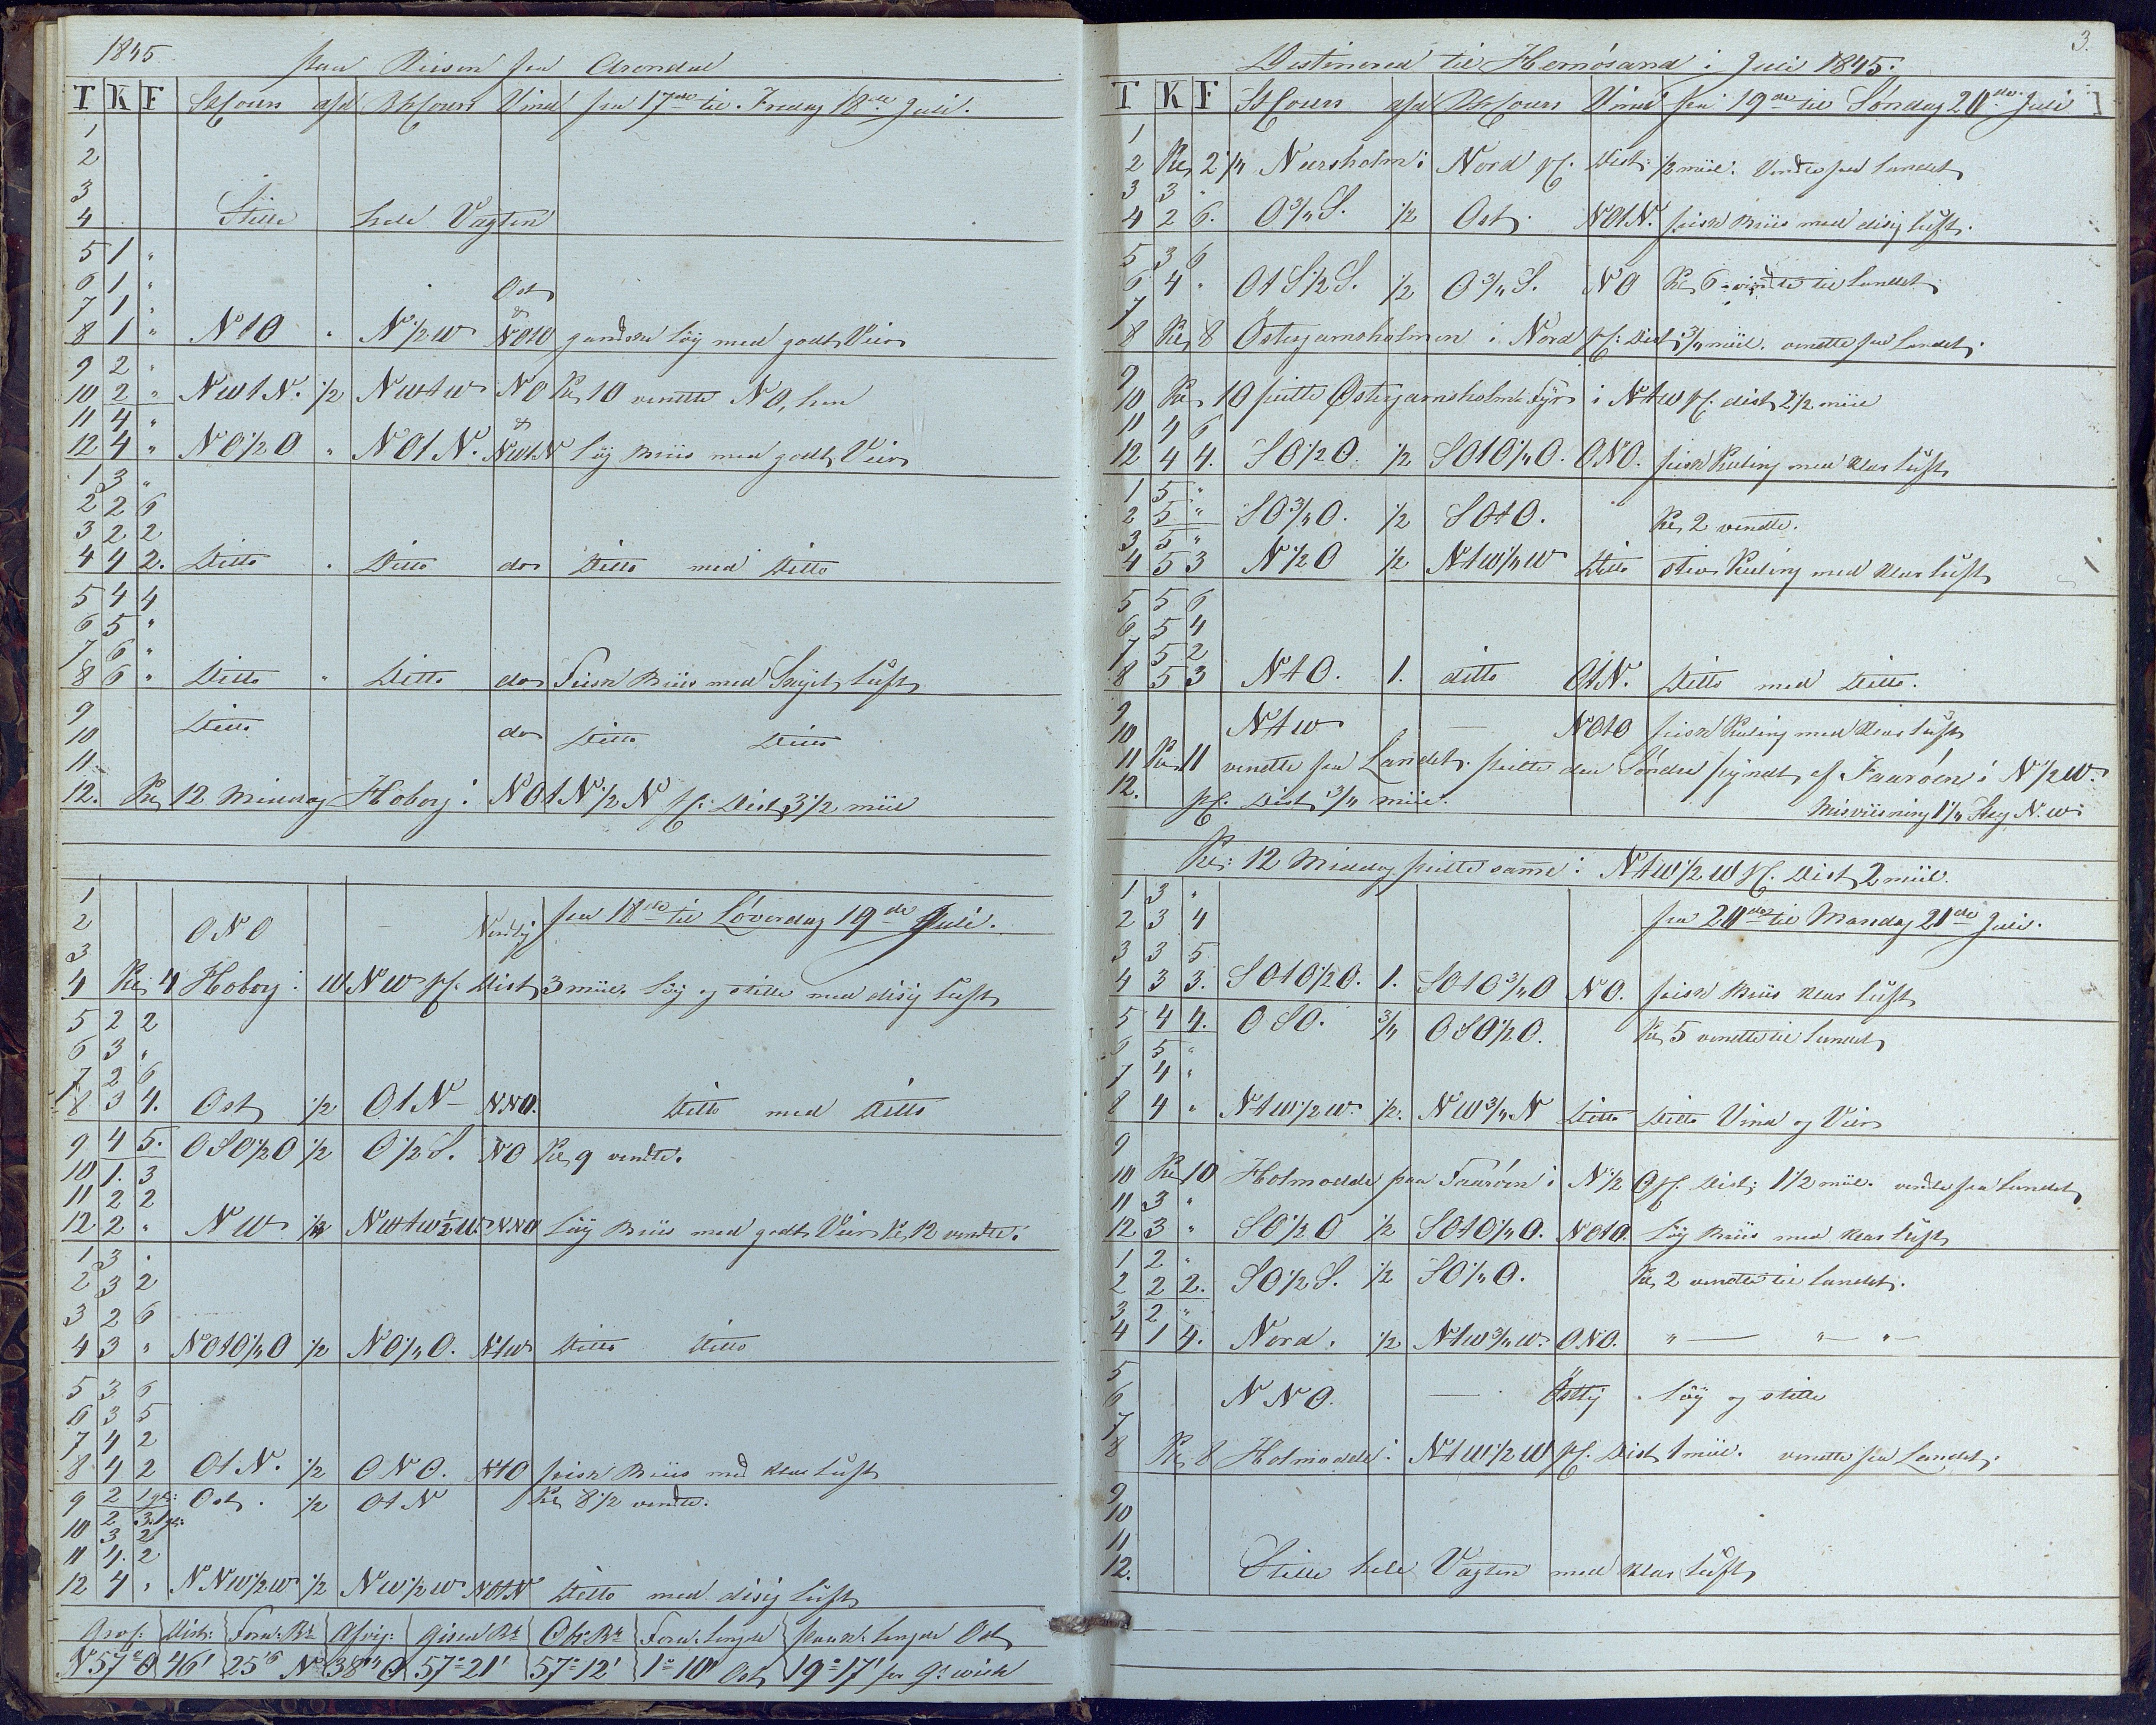 1845.
paa Reisen fra Arendal
T K F StCours afd BhCours Vind fra 17de til Fredag 18de Juli.
1
2
3
4 Stille hele Vagten
5 1 "
6 1 "
7 1 " Ost
8 1 " NtO " N1/2W NOtO gandske Løy med godt Veir
9 2 "
10 2 " NWtN. 1/2 NWtW NO Kl, 10 vendte NO, hen
11 4 "
12 4 " NO1/2O " NOtN. NWtN Løy Briis med godt Veir
1 3 "
2 2 6
3 2 2
4 4 2. Ditto " Ditto do Ditto med Ditto
5 4 4
6 5 "
7 6 "
8 6 " Ditto " Ditto do Frisk Briis med Skyet Luft
9
10 Ditto do Ditto Ditto
11.
12. Kl, 12 Middag Hoborg i NOtN1/2N pC. Dist, 3 1/2 miil
1 fra 18de til Løverdag 19de Juli.
2 ONO — Nordlig
3
4 Kl, 4 Hoborg i WNW pC. Dist, 3 miil. Løy og stille med disig Luft
5 2 2
6 3 "
7 2 6
8 3 4. Ost 1/2 OtN — NNO. Ditto med Ditto
9 4 5. OSO1/2O 1/2 O1/2S. NO Kl, 9 vendte.
10 1. 3
11 2 2
12 2 " NW 1/2 NWtW1/2W. NNO Løy Briis med godt Veir Kl, 12 vendte.
1 3 "
2 3 2
3 2 6
4 3 " NOtO1/4O 1/2 NO1/4O. NtW Ditto Ditto
5 3 6
6 3 5
7 4 2
8 4 2 OtN. 1/2 ONO. NtO frisk Briis med klar Luft
9 2 Ost. 1/2 OtN Kl, 8 1/2 vendte.
10 3 2
11 4. 2
12 4 " NNW1/2W 1/2 NW1/2W NOtN Ditto med disig Luft
Dist: Forn: Br: Afvig: Gisen Br: Obs: Br: Forn: Længde Længde Ost
N57°O 46' 25'6 N 38'4 O 57°21' 57°12' 1°10' Ost 19°17' fra Gr wich
3.
Destinered til Hernøsand i Juli 1845.
T K F StCours afd BhCours Vind fra 19de til Søndag 20de Juli
1
2 Kl, 2 1/4 Nærsholm i Nord pC. Dist: 1/2 miil: Vendte fra Landet
3 3 "
4 2 6. O3/4S. 1/2 Ost. NOtN. frisk Briis med disig Luft.
5 3 6
6 4 " OtS1/2S. 1/2 O3/4S. NO Kl, 6 vendte til Landet
7
8 Kl, 8 Østergarnsholmen i Nord pC. Dist, 3/4 miil. vendte fra Landet.
9
10 Kl, 10 peilte Østergarnsholms Fyr i NtW pC. dist, 2 1/2 miil
11 4 6
12 4 4. SO1/2O. 1/2 SOtO1/4O. ONO. frisk Kuling med klar Luft
1 5 "
2 5 " SO3/4O. 1/2 SOtO. Kl, 2 vendte.
3 5 "
4 5 3 N1/2O 1/2 NtW1/4W Ditto stiv Kuling med klar Luft
5 5 6
6 5 4
7 5 2
8 5 3 NtO. 1. ditto OtN. Ditto med Ditto.
9
10 NtW — NOtO frisk Kuling med klar Luft
11 Kl, 11 vendte fra Landet. peilte den Søndre pyndt af Faarøen i N1/2W.
12. pC. Dist, 3/4 miil. Misviisning 1 1/4 Streg N.W.
Kl: 12 Middag peilte samme i NtW1/2W pC. Dist, 2 miil.
1 3 "
2 3 4 fra 20de til Mandag 21de Juli.
3 3 5
4 3 3. SOtO1/2O. 1. SOtO3/4O NO. frisk Briis klar Luft
5 4 4. OSO. 3/4 OSO1/2O. Kl, 5 vendte til Landet
6 5 "
7 4 "
8 4 " NtW1/2W. 1/2. NW3/4N Ditto Ditto Vind og Veir
9
10 Kl, 10 Holmodde paa Faarøen i N1/2O pC. Dist, 1 1/2 miil. vendte fra Landet
11 3 "
12 3 " SO1/2O 1/2 SOtO1/4O. NOtO. Løy Briis med klar Luft
1 2 "
2 2 2. SO1/2S. 1/2 SO1/4O. Kl, 2 vendte til Landet.
3 2 "
4 1 4. Nord. 1/2 NtW3/4W. ONO. " — " — " —
5
6 NNO. — Østlig Løy og stille
7
8 Kl, 8 Holmodde i NtW1/2W pC. Dist, 1 miil. vendte fra Landet.
9
10
11
12. Stille hele Vagten med klar Luft